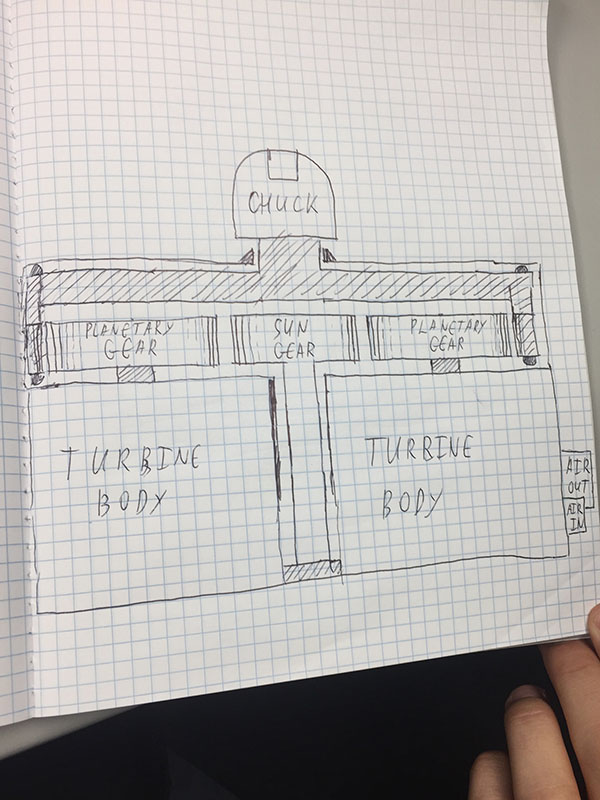 CHUCK
PLANETARY
GEAR
SUN
GEAR
PLANETARY
GEAR
TURBINE
BODY
TURBINE
BODY
AIR
OUT
AIR
IN